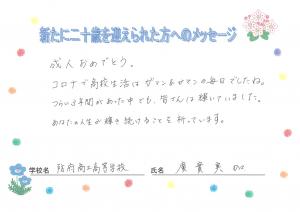 新たに二十歳を迎えられた方へのメッセージ
成人おめでとう。
コロナで高校生活はガマンあるマンの毎日でしたね。
つらい3年間があった中でも、皆さんは輝いていました。
あなたの人生が輝き続けることを祈っています。
学校名 防府商工高等学校 氏名 廣實